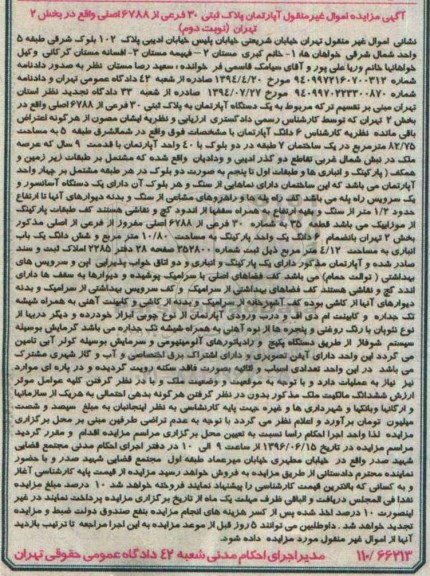 آگهی مزایده اموال غیر منقول آپارتمان پلاک ثبتی ۳۰ فرعی از ۶۷۸۸ اصلی واقع در بخش ۲
تهران (نوبت دوم)
نشانی اموال غیر منقول تهران خیابان شریعتی خیابان پلیس خیابان ادیبی پلاک ۱۰۲ بلوک شرقی طبقه ۵
واحد شمال شرقی خواهان ها: ۱- خانم کبری مستان ۲- فهیمه مستان ۳- افسانه مستان گرکانی وکیل
خواهانها خانم وریا علی پور و آقای سیامک قاسمی فر خوانده : سعید رضا مستان نظر به صدور دادنامه
شماره ۹۴۰۹۹۷۲۱۶۰۷۰۰۳۱۲ مورخ ۱۳۹۴/۴/۲۰ صادره از شعبه ۴۲ دادگاه عمومی تهران و دادنامه
شماره ۹۴۰۹۹۷۰۲۲۳۳۰۰۸۷۰ مورخ ۱۳۹۴/۰۷/۲۷ صادره از شعبه ۳۳ دادگاه تجدید نظر استان
تهران مبنی بر تقسیم ترکه مربوط به یک دستگاه آپارتمان به پلاک ثبتی ۳۰ فرعی از ۶۷۸۸ اصلی واقع در
بخش ۲ تهران که توسط کارشناس رسمی دادگستری ارزیابی و نظریه ایشان مصون از هر گونه اعتراض
باقی مانده نظریه کارشناس ۶ دانگ آپارتمان با مشخصات فوق واقع در شمالشرق طبقه ۵ به مساحت
۸۲/۷۵ مترمربع در یک ساختمان ۷ طبقه در دو بلوک با ۴۰ واحد آپارتمان با قدمت ۹ سال که عرصه
ملک در نبش شمال غربی تقاطع دو گذر ادیبی و ودادیان واقع شده که مشتمل بر طبقات زیر زمین و
همکف ( پارکینگ و انباری ها و طبقات اول تا پنجم به صورت دو بلوک در هر طبقه مشتمل بر چهار واحد
آپارتمان می باشد که این ساختمان دارای نماهایی از سنگ و هر بلوک آن دارای یک دستگاه آسانسور و
یک سرویس راه پله می باشد کف راه پله ها و راهروهای مشاعی از سنگ و بدنه دیوارهای آنها تا ارتفاع
حدود ۱/۲ متر از سنگ و بقیه ارتفاع به همراه سقفها از اندود گچ و نقاشی هستند کف طبقات پارکینگ
از موزاییک می باشد قطعه ۳۵ به شماره ۳۰ فرعی از ۶۷۸۸ اصلی مفروز از فرعی از اصلی مذکور
بخش ۲ تهران بانضمام ۶ دانگ یک واحد پارکینگ به مساحت ۱۰/۸۰ متر مربع و شش دانگ یک باب
انباری به مساحت ۴/۱۲ متر مربع ذیل ثبت شماره ۳۵۲۸۰۰ صفحه ۲۸ دفتر ۲۲۸۵ املاک ثبت و سند
صادر شده و آپارتمان مذکور دارای یک پارکینگ و انباری و دو اتاق خواب پذیرایی اپن و سرویس های
بهداشتی ( توالت حمام) می باشد کف فضاهای اصلی با سرامیک پوشیده و دیوارها به سقف ها دارای
اندود گچ و نقاشی هستند کف فضاهای بهداشتی از سرامیک و کف سرویس بهداشتی از سرامیک و بدنه
دیوارهای آنها از کاشی بوده کف آشپزخانه از سرامیک و بدنه از کاشی و کابینت آهنی به همراه شیشه
تک جداره و کابینت ام دی اف و درب ورودی آپارتمان از نوع چوبی ابزار خودرده و دیگر دربها از
نوع نئوپان با رنگ روغنی و پنجره ها از نوع آهنی به همراه شیشه تک جداره می باشد گرمایش بوسیله
سیستم شوفاژ از طریق دستگاه پکیج و رادیاتورهای آلومینیومی و سرمایش بوسیله کولر آبی تامین
می گردد این واحد دارای آیفن تصویری و دارای اشتراک برق اختصاصی و آب و گاز شهری مشترک
می باشد در این واحد تعدادی اسباب و اثاثیه بصورت فاقد سکنه رویت گردیده و در پاره ای موارد
نیز نیاز به عملیات دارد و با توجه به موقعیت و وضعیت ملک و با در نظر گرفتن کلیه عوامل موثر
ارزش ششدانگ مالکیت ملک مذکور بدون در نظر گرفتن هرگونه بدهی احتمالی به هریک از سازمانها
و ارگانها وبانکها و شهرداری ها و غیره جهت پایه کارشناسی به نظر اینجانبان به مبلغ سیصد و شصت
میلیون تومان برآورد و اعلام نظر می گردد با توجه به عدم تراضی طرفین مبنی بر محل برگزاری
مزایده لذا واحد اجرا احکام راسا نسبت به تعیین محل برگزاری مراسم مزایده اقدام و مقرر گردید
مراسم مزایده در تاریخ ۱۳۹۶/۰۶/۱۵ از ساعت ۹ الی ۱۰ در دفتر اجرای احکام مدنی مجتمع قضایی
شهید صدر واقع در خیابان مطهری خیابان میرعماد طبقه اول مجتمع قضایی شهید صدر و با حضور
نماینده محترم دادستانی از طریق مزایده به فروش خواهد رسید مزایده از قیمت پایه کارشناسی آغاز
و به کسانی که بالاترین قیمت کارشناسی را پیشنهاد نمایند فروخته خواهد شد ۱۰ درصد مبلغ مزایده
نقدا فی المجلس دریافت و الباقی ظرف مهلت یک ماه از تاریخ برگزاری مزایده پرداخت نمایند در غیر
اینصورت ۱۰ درصد اخذ شده پس از کسر هزینه های انجام مزایده بنفع صندوق دولت ضبط و مزایده
تجدید خواهد شد . داوطلبین می توانند ۵ روز قبل از موعد مزایده به این اجرا مراجعه تا ترتیب بازدید
آنها از اموال غیر منقول مورد مزایده داده شود.
۱۱۰/۶۶۲۱۳ مدیر اجرای احکام مدنی شعبه ۴۲ دادگاه عمومی حقوقی تهران